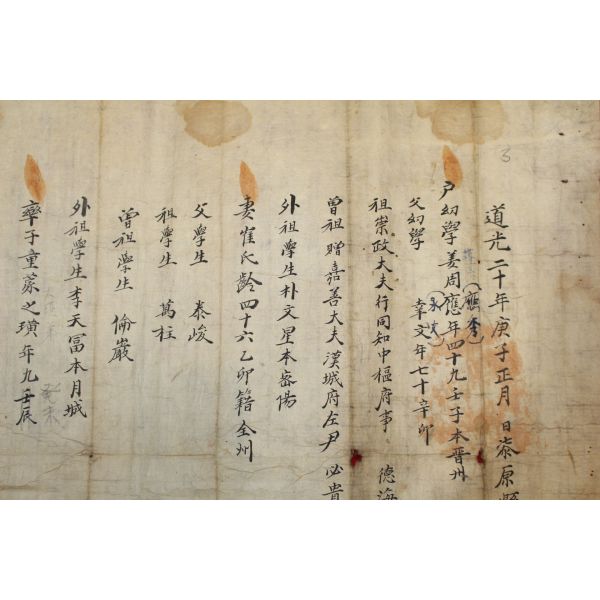 道光二十年庚子正月 日泰原縣
戶幼學姜周應年四十九壬子本晋州
父幼學 幸文年七十辛卯
祖崇政大夫行同知中樞府事 德海
曾祖贈嘉善大夫漢城府左尹 必貴
外祖學生朴文星本密陽
妻崔氏齡四十六乙卯籍全州
父學生 泰峻
祖學生 萬柱
曾祖學生 倫巖
外祖學生李天冨本月城
率子童蒙之璜年九壬辰
3